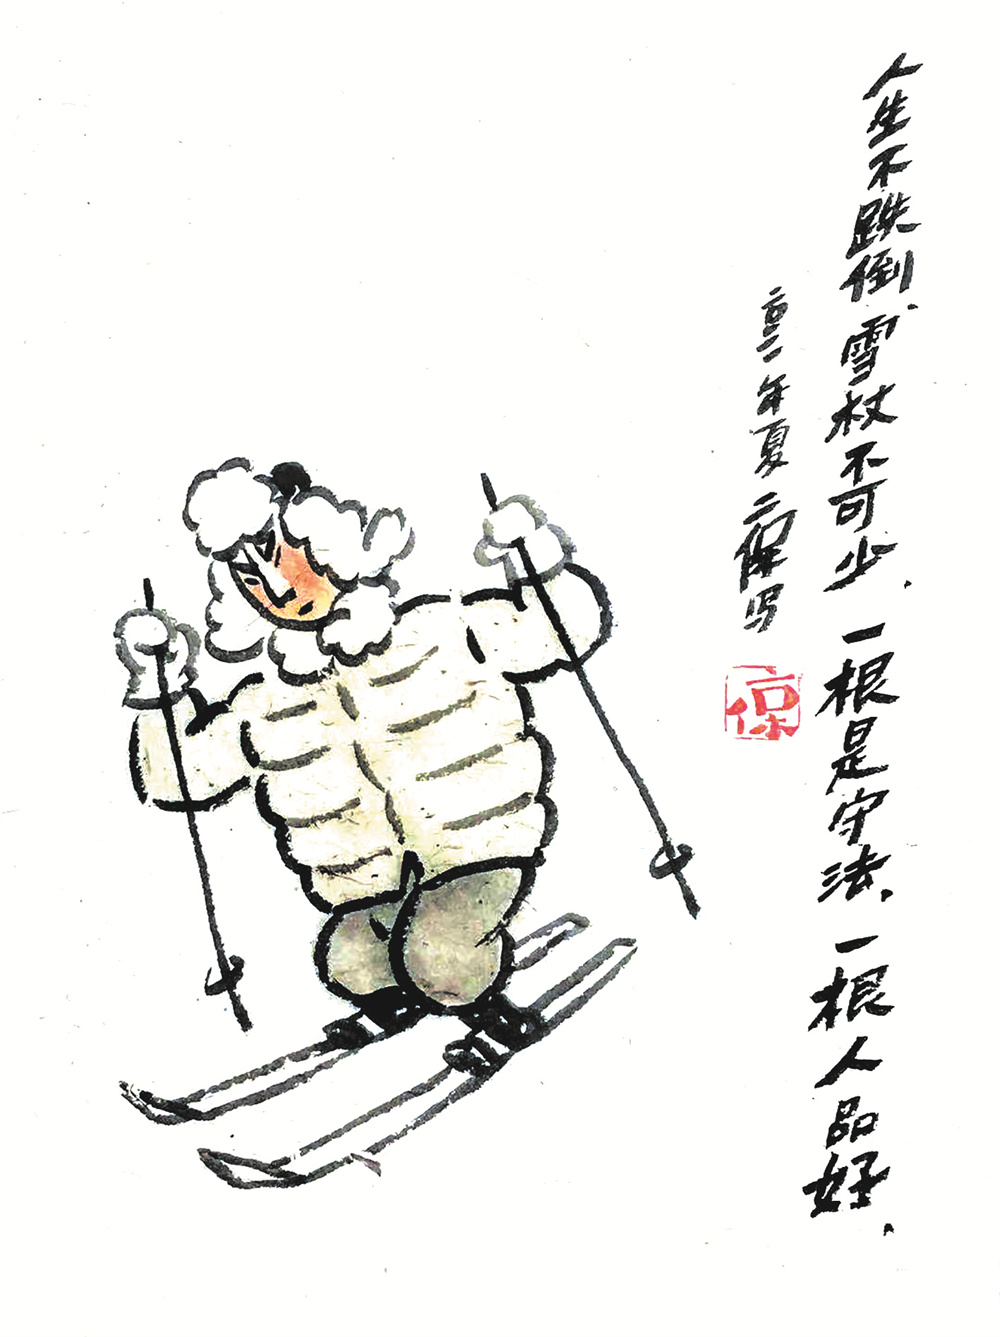 人生不跌倒、雪杖不可少、一根是守法、一根人品好、
二〇二一年夏 二保写
二保